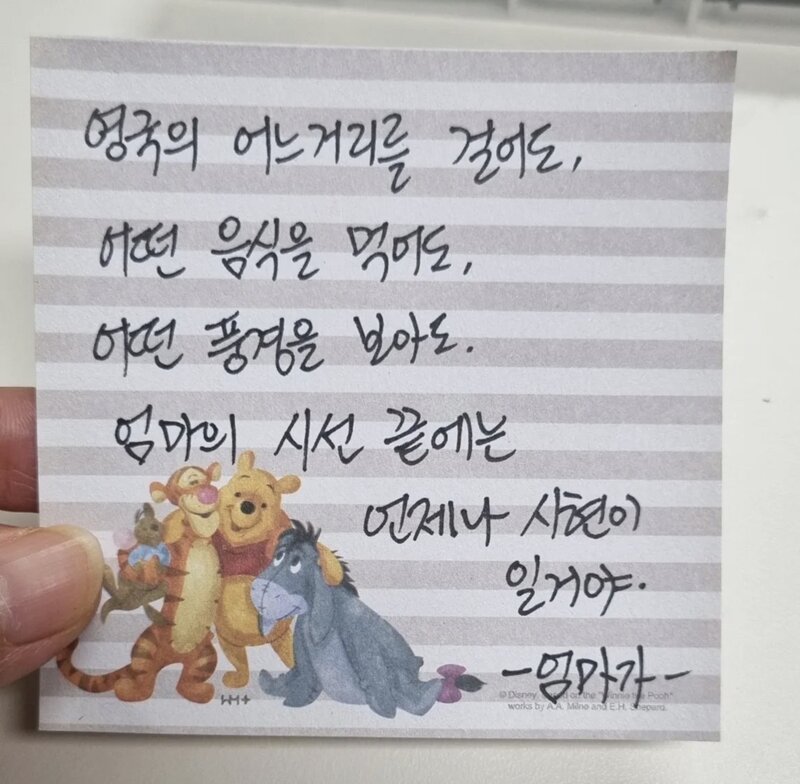 영국의 어느거리를 걸어도,
어떤 음식을 먹어도,
어떤 풍경을 보아도.
엄마의 시선 끝에는
언제나 시현이
일거야.
-엄마가-
© Disney. Based on the "Winnie the Pooh"
works by A.A. Milne and E.H. Shepard.